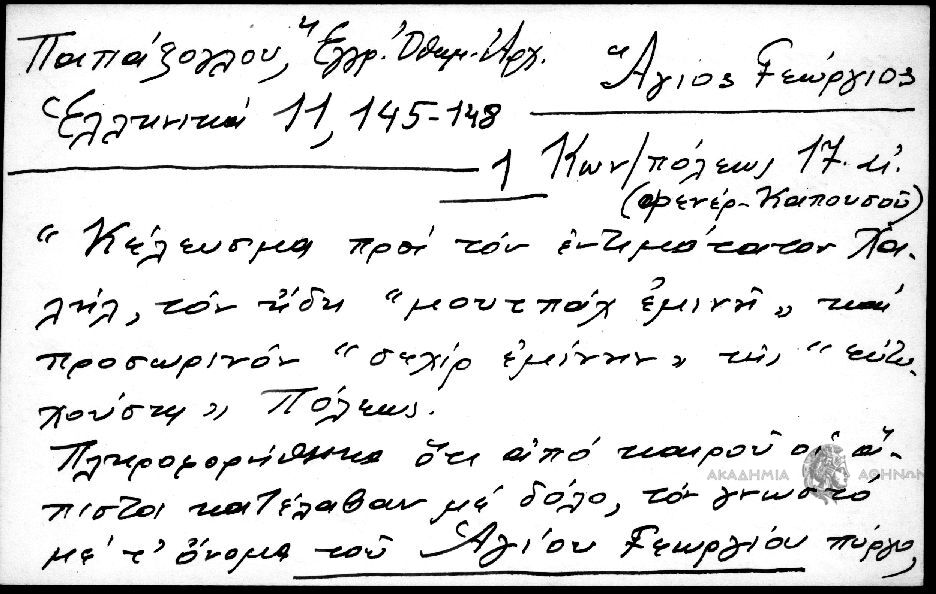 Παπάζογλου, "Έγγρ. Ὀθωμ. Ἀρχ.
Ἅγιος Γεώργιος
Ἑλληνικά 11, 145-148
1
Κων/πόλεως 17. αἰ.
(Φενέρ-Καπουσοῦ)
"Κέλευσμα πρός τόν ἐντιμότατον Χα-
λήλ, τόν ἤδη "μουτπάχ ἐμινῆ" καί
προσωρινόν "σεχίρ ἐμίνην" τῆς "εὐτυ-
χούσης" Πόλεως.
Πληροφορήθηκα ὅτι ἀπό καιροῦ οἱ ἄ-
πιστοι κατέλαβαν μέ δόλο, τόν γνωστό
μέ τ' ὄνομα τοῦ Ἁγίου Γεωργίου πύργο,
ΑΚΑΔΗΜΙΑ ΑΘΗΝΩΝ